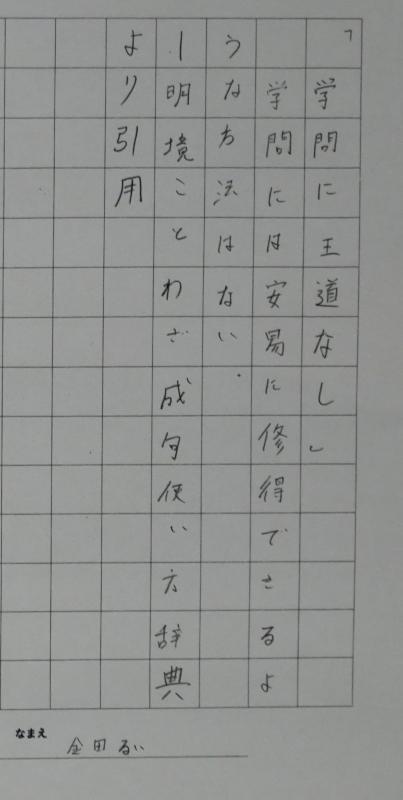 「学問に王道なし」
学問には安易に修得できるよ
うな方法はない。
ー明境ことわざ成句使い方辞典
より引用
なまえ 金田るい